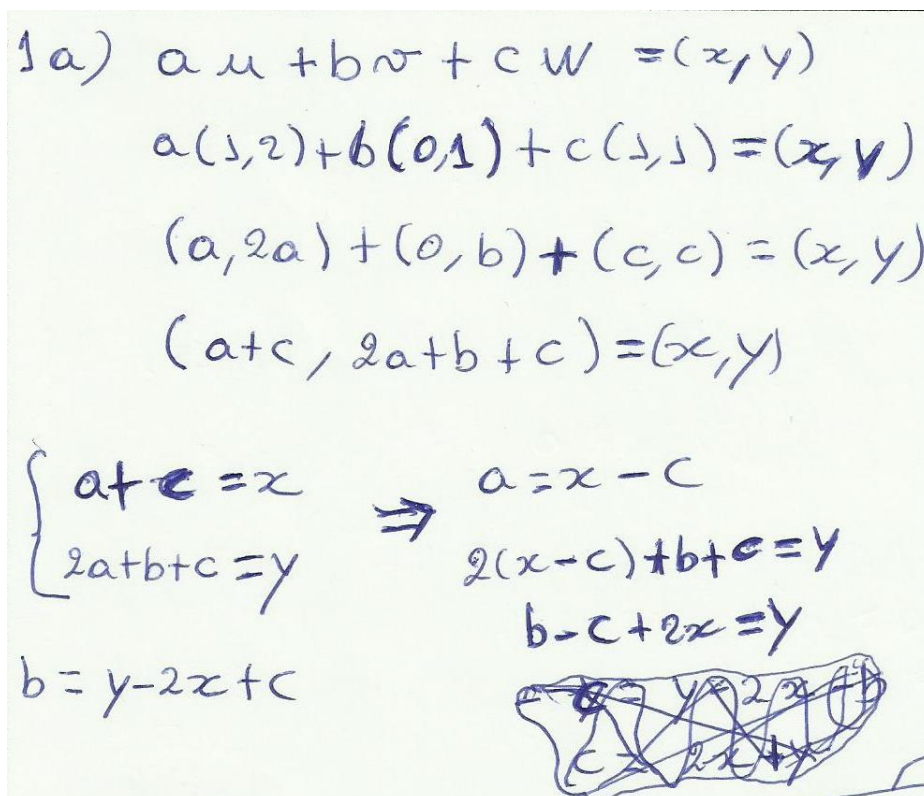 1a) au + bv + cw = (x, y)
a(1,2)+b(0,1)+c(1,1)=(x,y)
(a,2a)+(0,b)+(c,c)=(x,y)
(a+c, 2a+b+c)=(x,y)
a+c=x ⇒ a=x-c
2a+b+c=y 2(x-c)+b+c=y
b-c+2x=y
b=y-2x+c